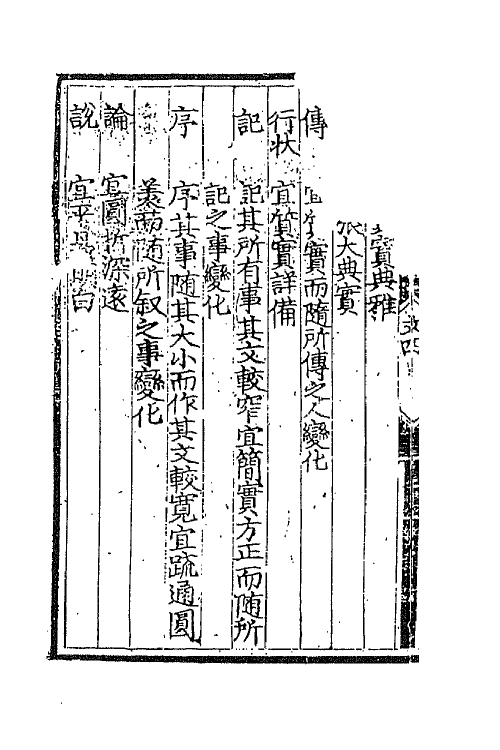 實典雅
大典實
傳 實而隨所傳之人變化
行状 宜質實詳備
記 記其所有事其文較窄宜簡實方正而随所
記之事變化
序 序其事随其大小而作其文較寛宜疏通圓
美而随所叙之事變化
論 宜圓折深遠
說 宜平 白